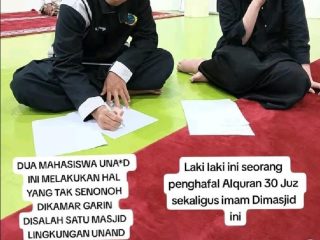 DUA MAHASISWA UNA*D
INI MELAKUKAN HAL
YANG TAK SENONOH
DIKAMAR GARIN
DISALAH SATU MASJID
LINGKUNGAN UNAND
Laki laki ini seorang
penghafal Alquran 30 Juz
sekaligus imam Dimasjid
ini